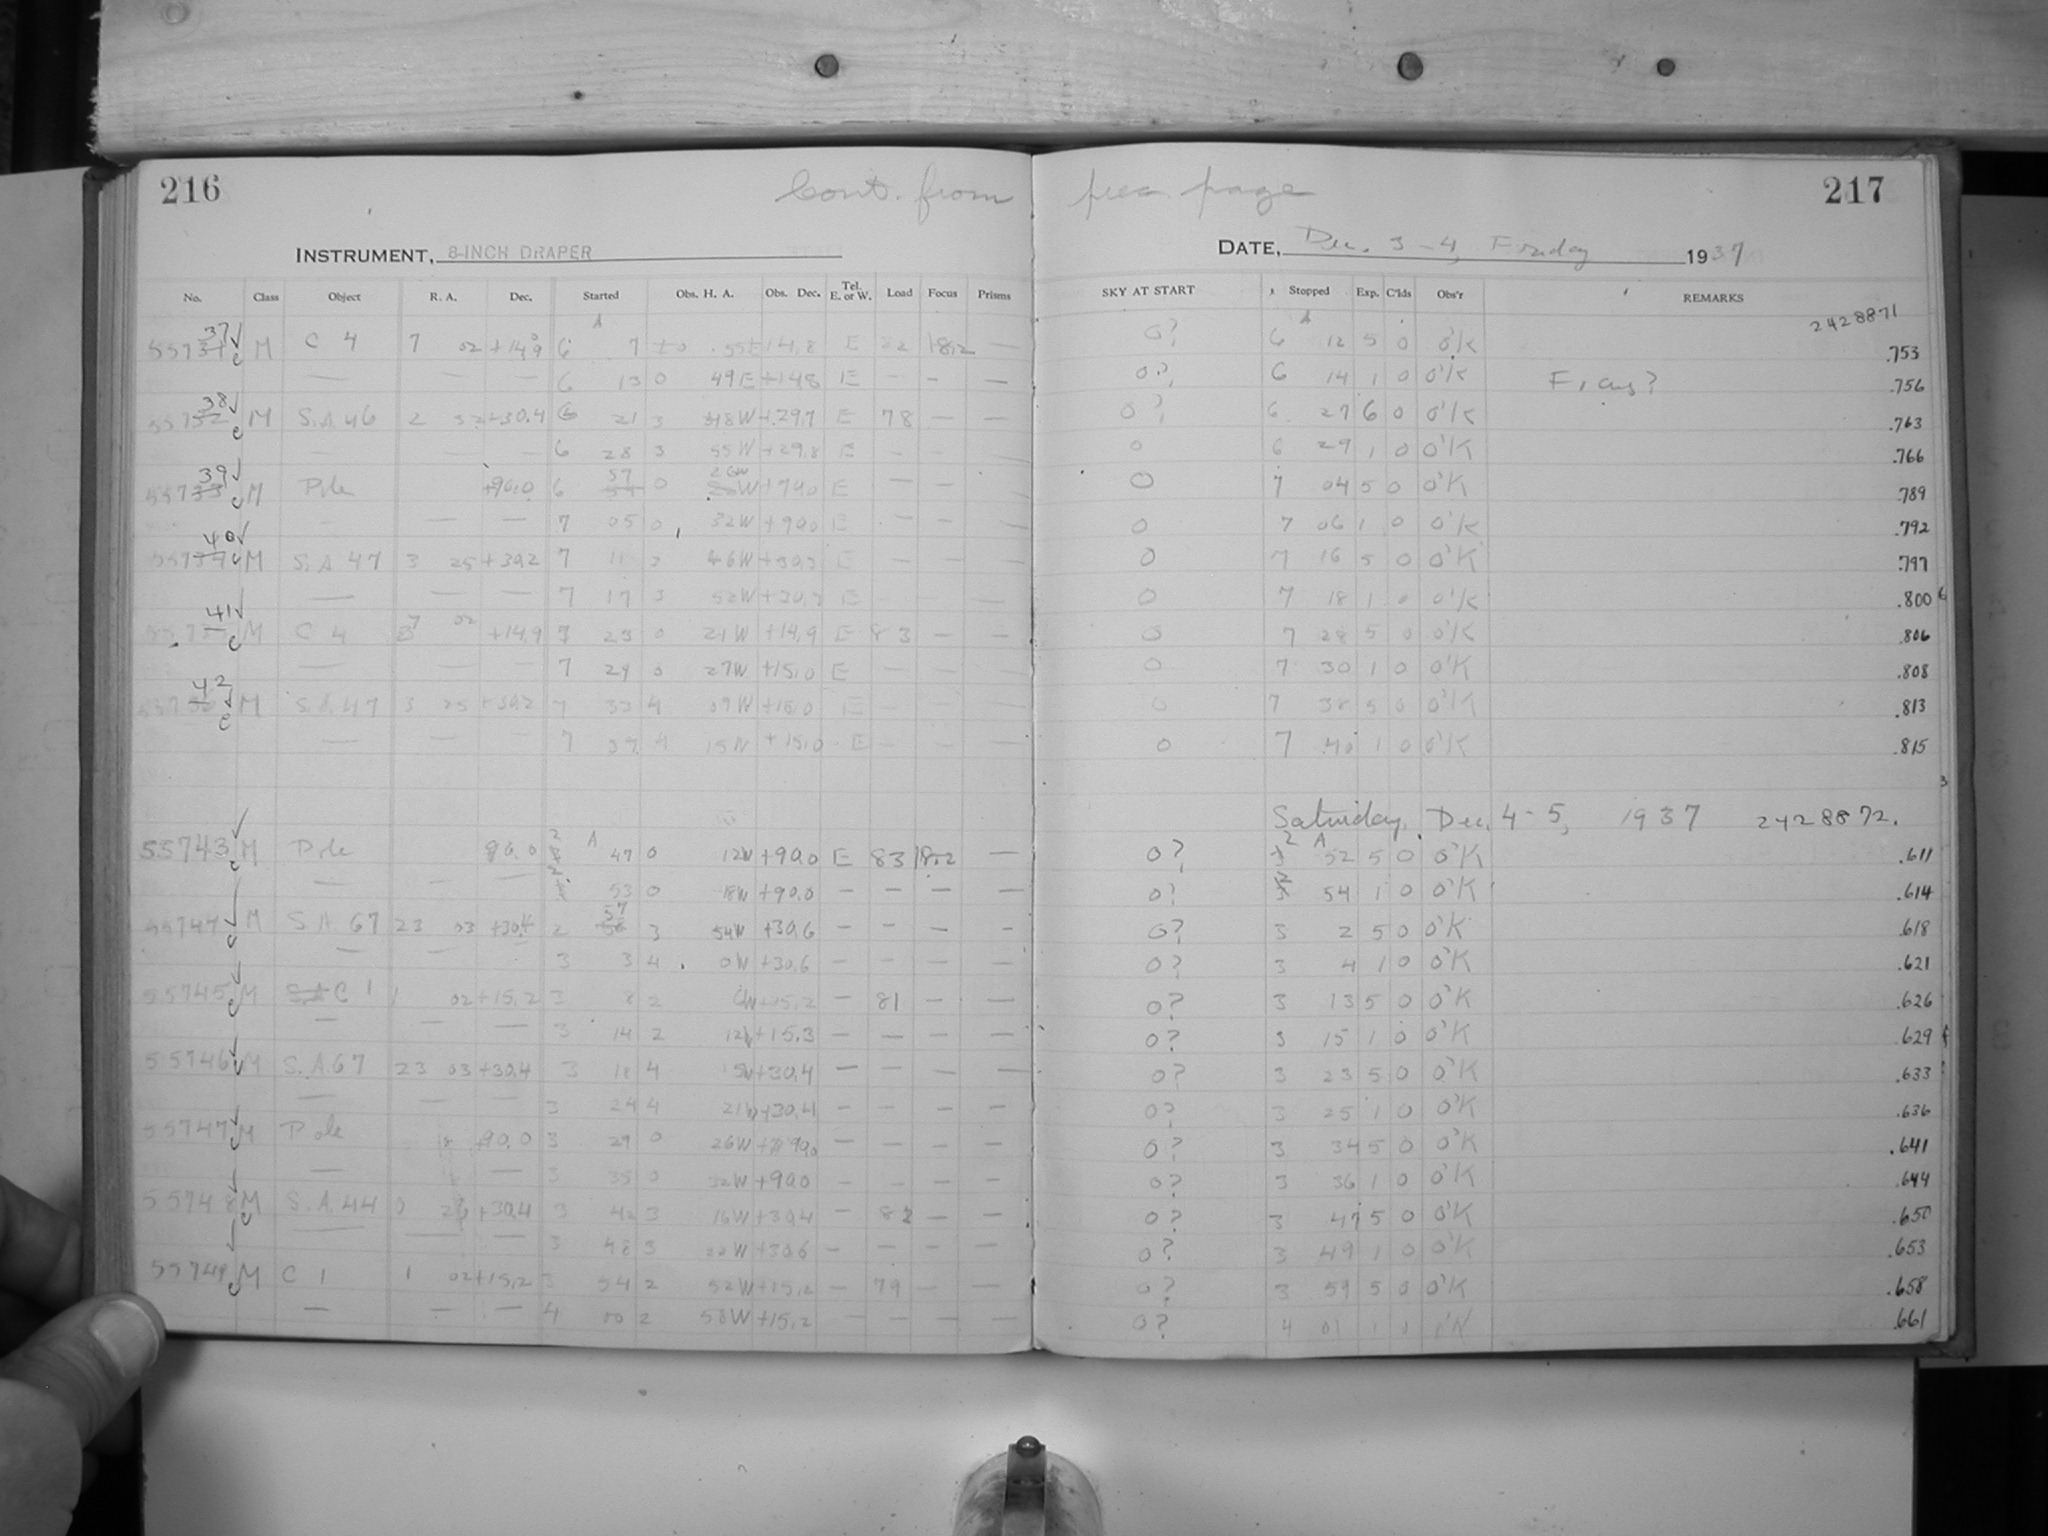 216 Cont. from prec. page 217
INSTRUMENT, 8-INCH DRAPER DATE, Dec. 3-4, Friday 1937
No. Class Object R. A. Dec. Started Obs. H. A. Obs. Dec. Tel. E. or W. Load Focus Prisms SKY AT START Stopped Exp. C'lds Obs'r REMARKS
2428871
37 M C 4 7 02 +14.9 6 7 +14.8 E 18.2 — 0? 6 12 5 0 O'K .753
— — — 6 13 0 49E +14.8 E — — — 0?, 6 14 1 0 O'K Focus? .756
38 M S.A. 46 2 +30.4 6 21 3 48W +29.7 E 78 — 0?, 6 27 6 0 O'K .763
— — — 6 28 3 55W +29.8 E 0 6 29 1 0 O'K .766
39 M Pole +90.0 6 57 0 26W E — — — 0 7 04 5 0 O'K .789
— — — 7 05 0 32W +90.0 E — — — 0 7 06 1 0 O'K .792
40 M S.A. 47 3 25 +30.2 7 11 46W E — — — 0 7 16 5 0 O'K .797
— — — 7 17 3 52W E — 0 7 18 1 0 O'K .800
41 M C 4 7 02 +14.9 7 23 0 21W +14.9 E 83 — — 0 7 28 5 0 O'K .806
— — — 7 29 0 27W +15.0 E — — — 0 7 30 1 0 O'K .808
42 M S.A. 47 3 25 +30.2 7 33 4 09W +15.0 E 0 7 38 5 0 O'K .813
— — — 7 39 4 15W +15.0 E — — — 0 7 40 1 0 O'K .815
Saturday, Dec. 4-5, 1937 2428872.
55743 M Pole 90.0 2 A 47 0 12W +90.0 E 83 18.2 — 0?, 2 A 52 5 0 O'K .611
— — — 53 0 18W +90.0 — — — — 0? 54 1 0 O'K .614
55744 M S.A. 67 23 03 +30.4 2 57 3 54W +30.6 — — — — 0?, 3 2 5 0 O'K .618
— — 3 3 4 0W +30.6 — — — — 0? 3 4 1 0 O'K .621
55745 M C 1 1 02 +15.2 3 8 2 6W +15.2 — 81 — — 0? 3 13 5 0 O'K .626
— — — 3 14 2 12W +15.3 — — — — 0? 3 15 1 0 O'K .629
55746 M S.A. 67 23 03 +30.4 3 18 4 15W +30.4 — — — — 0? 3 23 5 0 O'K .633
— — — 3 24 4 21W +30.4 — — — — 0? 3 25 1 0 O'K .636
55747 M Pole 90.0 3 29 0 26W +90.0 — — — — 0? 3 34 5 0 O'K .641
— — 3 35 0 32W +90.0 — — — — 0? 3 36 1 0 O'K .644
55748 M S.A. 44 0 26 +30.4 3 42 3 16W +30.4 — 82 — — 0? 3 47 5 0 O'K .650
— — — 3 48 3 22W +30.6 — — — — 0? 3 49 1 0 O'K .653
55749 M C 1 1 02 +15.2 3 54 2 52W +15.2 — 79 — — 0? 3 59 5 0 O'K .658
— — — 4 00 2 58W +15.2 — — — — 0? 4 01 1 0 O'K .661